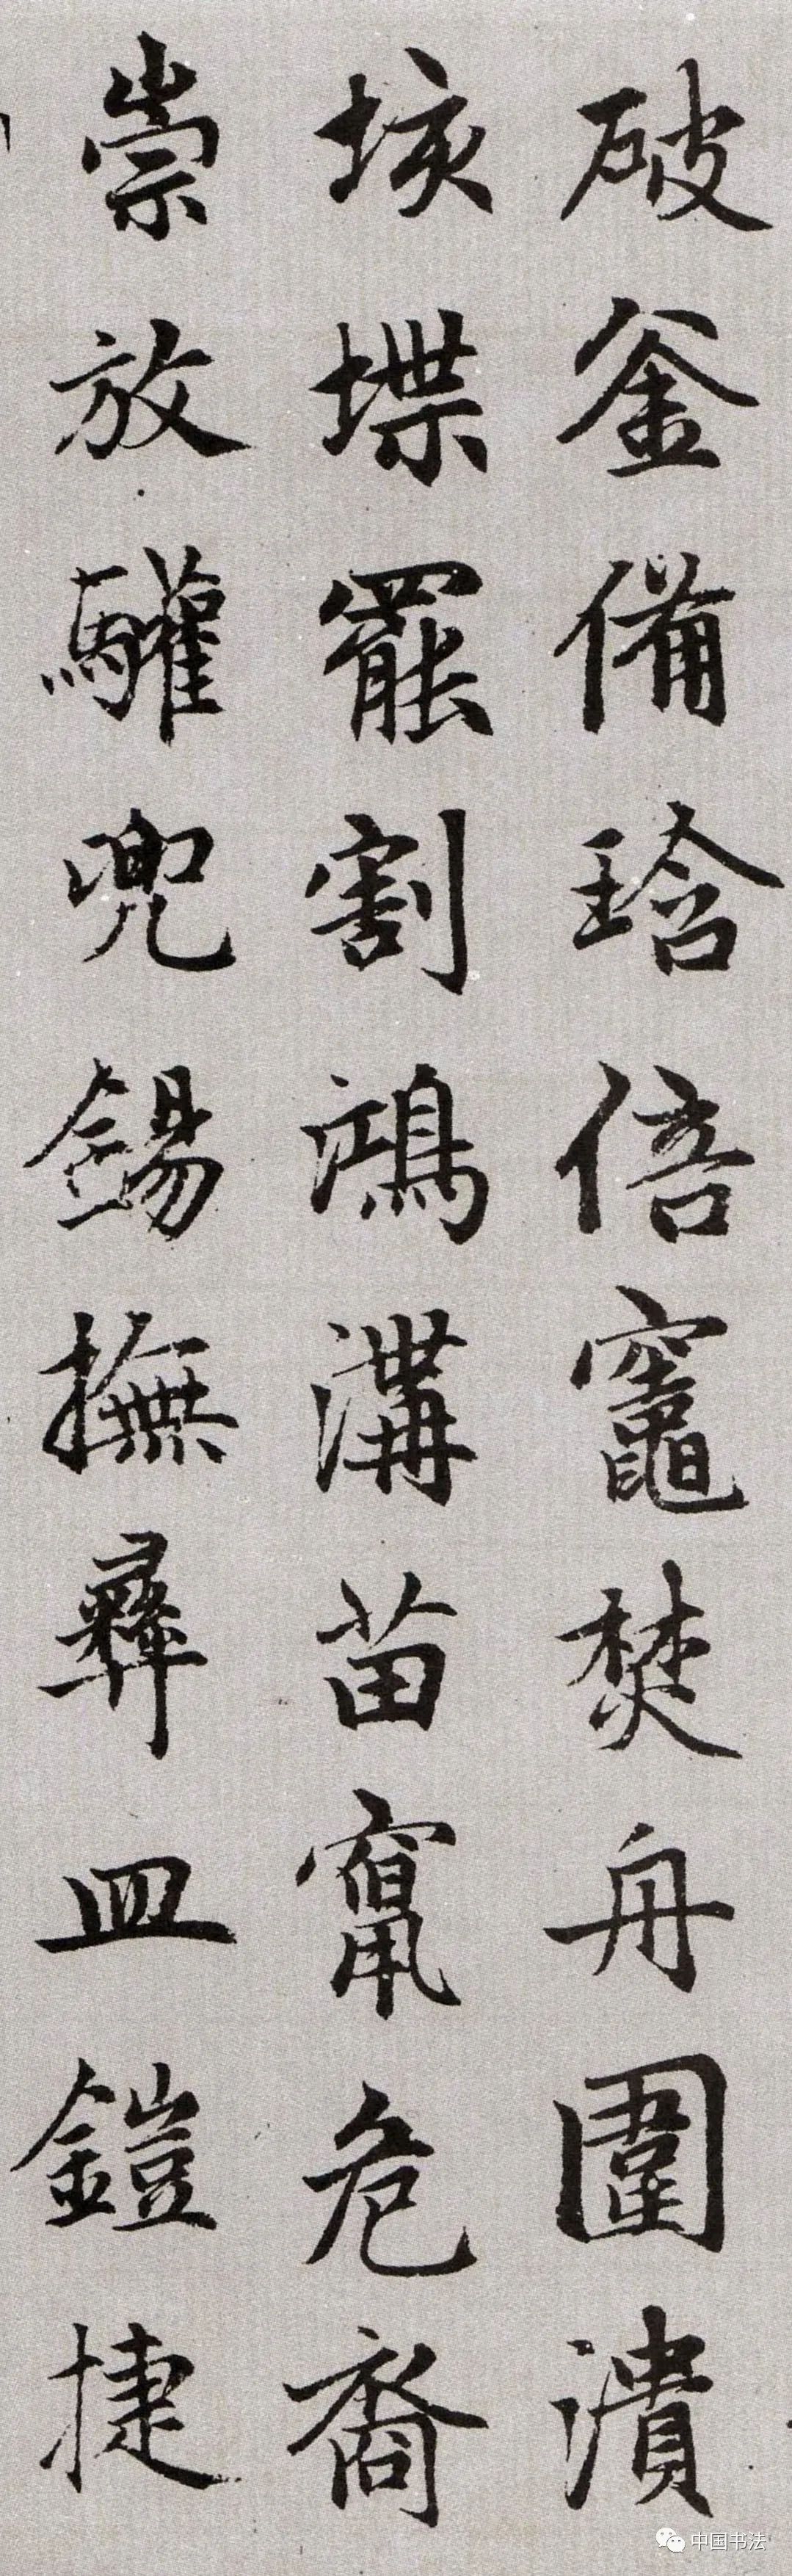 破釜備琀倍竈焚舟圍潰
垓堞罷割鴻溝苗竄危裔
崇放驩兜錫撫彝皿鎧捷
中国书法